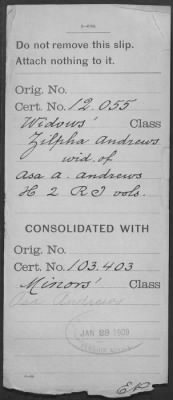 Do not remove this slip.
Attach nothing to it.
Orig. No.
Cert. No. 12.055
Widows' Class
Zilpha Andrews
wid. of
Asa A. Andrews
H 2 R I vols.
CONSOLIDATED WITH
Orig. No.
Cert. No. 103.403
Minors' Class
Asa Andrews
JAN 29 1909